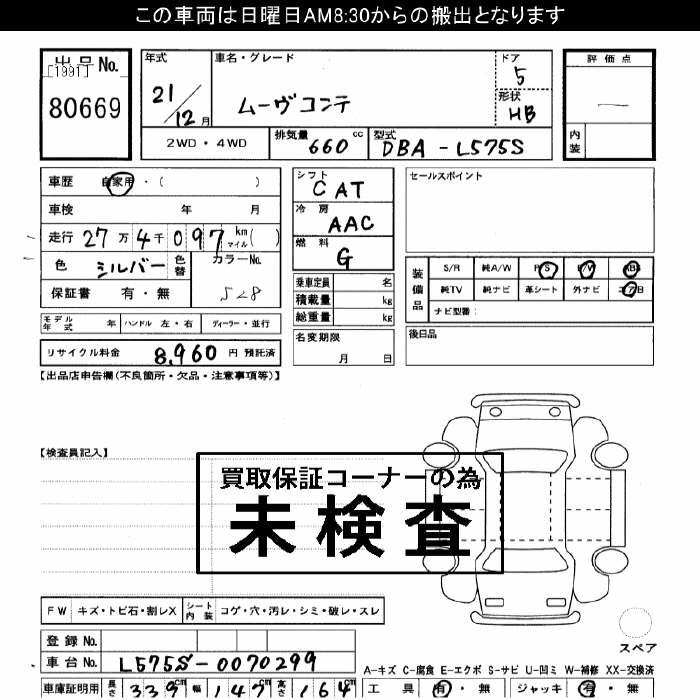 この車両は日曜日AM8:30からの搬出となります
出品No.
[1991]
80669
年式 21/12月
車名・グレード ムーヴコンテ
ドア 5
形状 HB
評価点
内装
2WD・4WD
排気量 660cc
型式 DBA-L575S
車歴 自家用・( )
車検 年 月
走行 27万4千097km マイル( )
色 シルバー 色替 カラーNo. S28
保証書 有・無
シフト CAT
冷房 AAC
燃料 G
セールスポイント
乗車定員 名
積載量 kg
総重量 kg
装備品
S/R 純A/W P/S P/W ABS
純TV 純ナビ 革シート 外ナビ エアB
ナビ型番:
モデル年式 年 ハンドル 左・右 ディーラー・並行
名変期限 月 日
後日品
リサイクル料金 8,960円 預託済
【出品店申告欄(不良箇所・欠品・注意事項等)】
【検査員記入】
買取保証コーナーの為
未検査
FW キズ・トビ石・割レX シート内装 コゲ・穴・汚レ・シミ・破レ・スレ
スペア
登録No.
車台No. L575S-0070299
A-キズ C-腐食 E-エクボ S-サビ U-凹ミ W-補修 XX-交換済
車庫証明用 長さ 339cm 幅 147cm 高さ 164cm
工具 有・無 ジャッキ 有・無